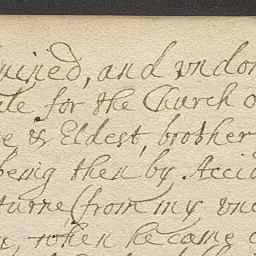 ruined, and vndon
for the Church o
& Eldest, brother
being then by Acci
turne (from my vnc
when he came